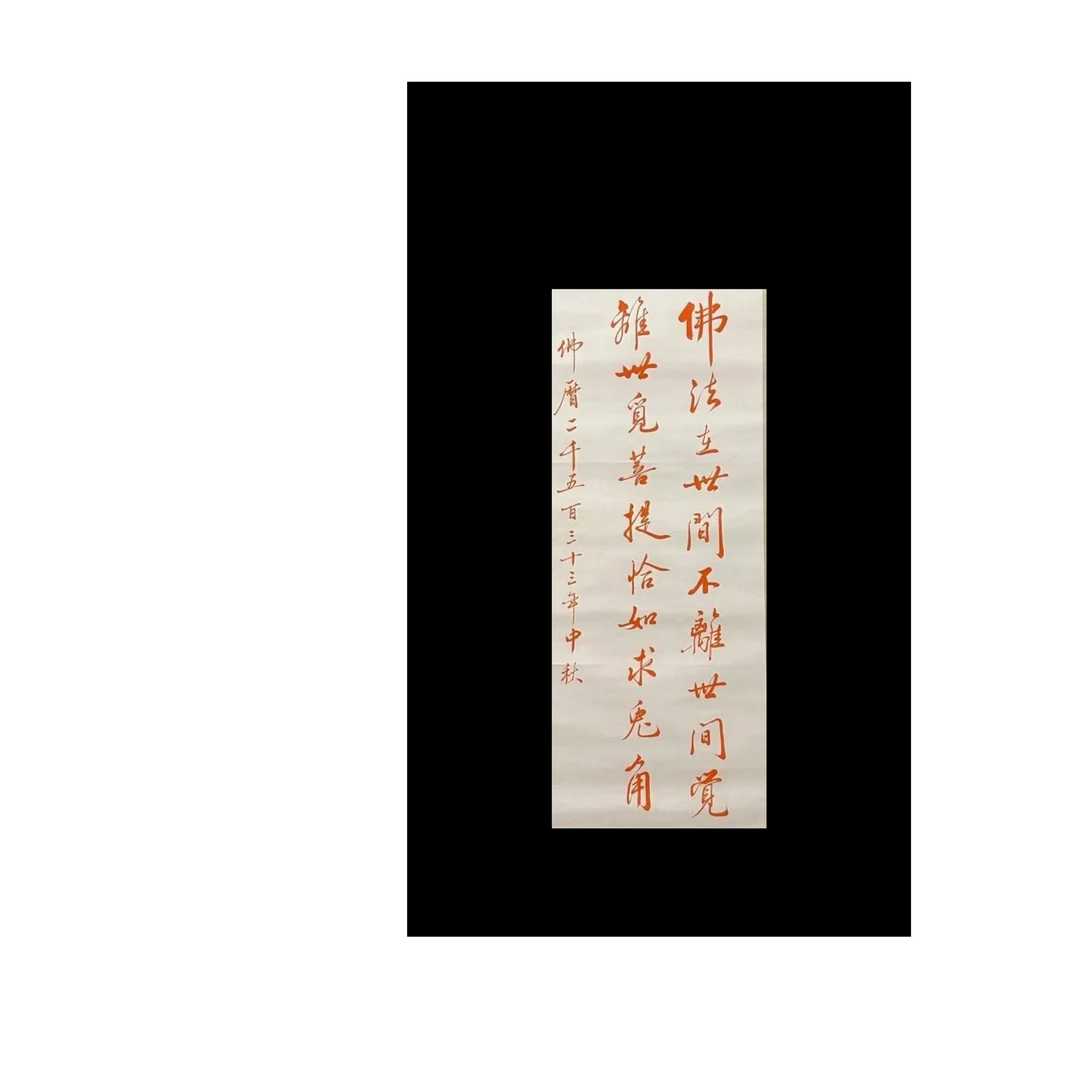 佛法在世間不離世间覺
離世覓菩提恰如求兎角
佛曆二千五百三十三年中秋